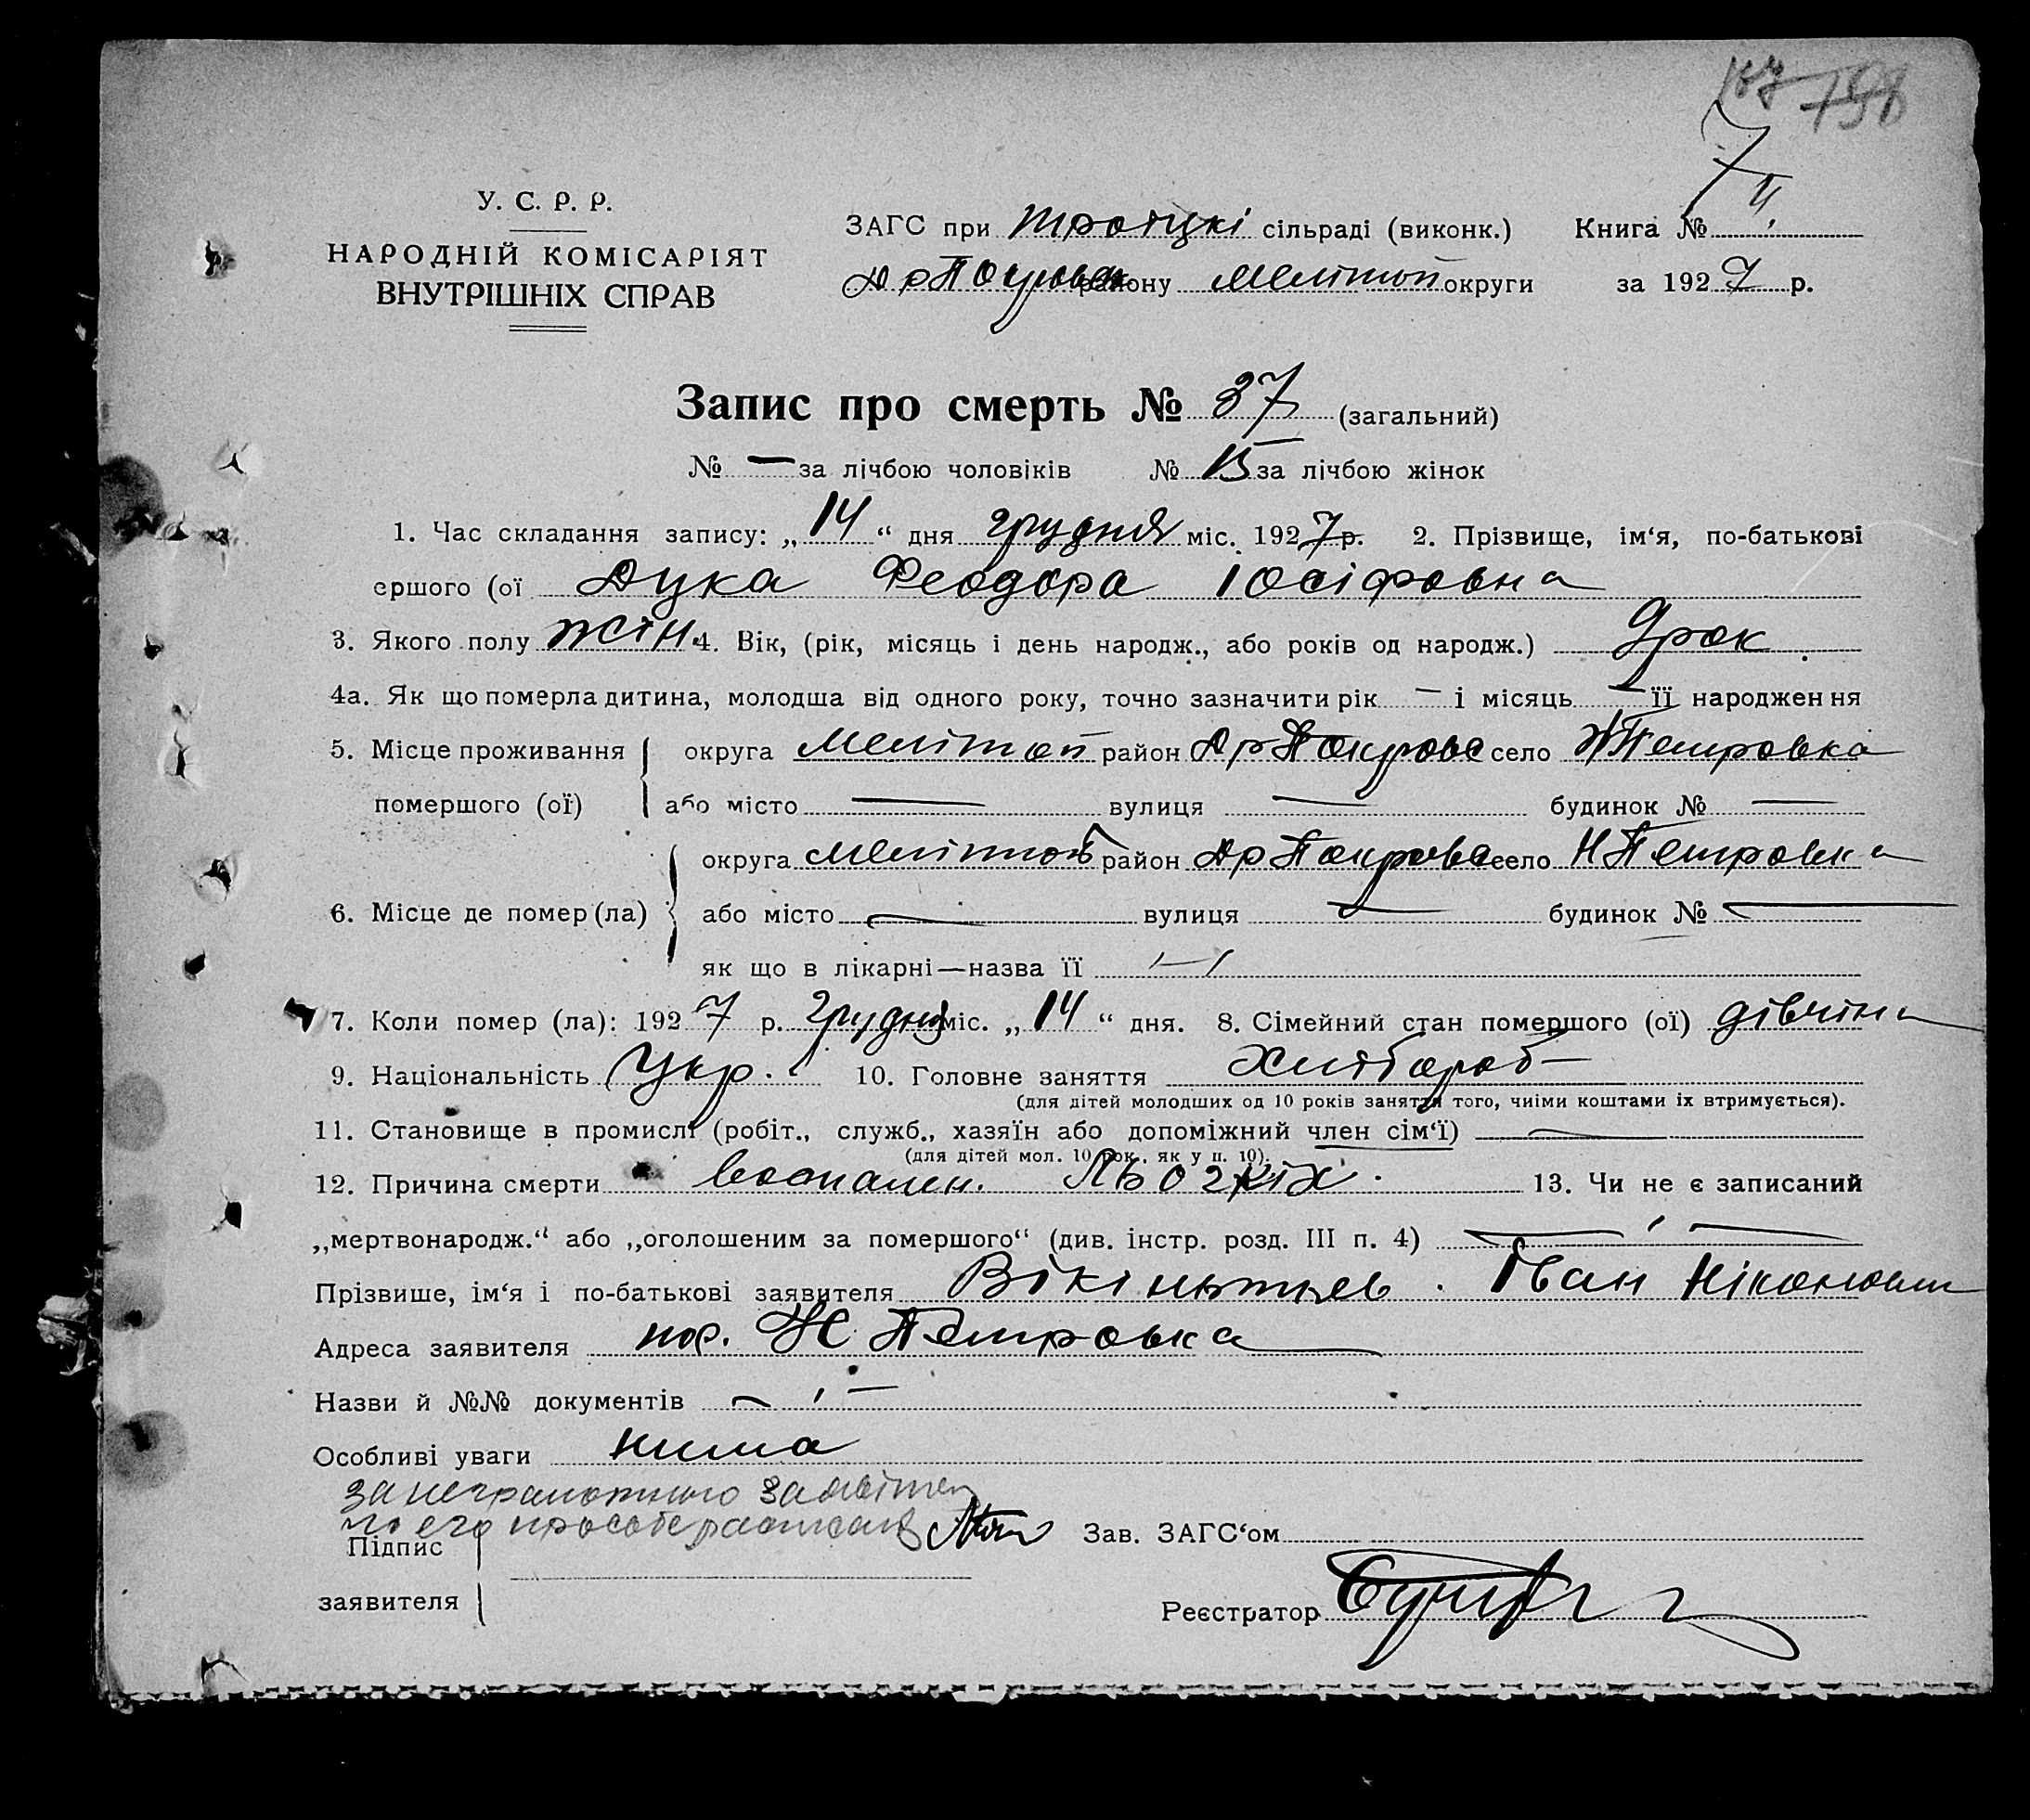 У. С. Р. Р.
НАРОДНІЙ КОМІСАРІЯТ
ВНУТРІШНІХ СПРАВ
ЗАГС при Троїцкі сільраді (виконк.) Книга № 7
району Мелітоп округи за 1927 р.
Запис про смерть № 37 (загальний)
№ — за лічбою чоловіків № 15 за лічбою жінок
1. Час складання запису: „14“ дня грудня міс. 1927 р. 2. Прізвище, ім‘я, по-батькові
ершого (ої Дука Феодора Іосіфовна
3. Якого полу жін. 4. Вік, (рік, місяць і день народж., або років од народж.) 9 рок
4а. Як що померла дитина, молодша від одного року, точно зазначити рік — і місяць — її народження
5. Місце проживання округа Мелітоп район Др Покровс село Н Петровка
помершого (ої) або місто — вулиця — будинок № —
округа Мелітоп район Др Покровс село Н Петровка
6. Місце де помер (ла) або місто — вулиця — будинок № —
як що в лікарні—назва її —
7. Коли помер (ла): 1927 р. грудня міс. „14“ дня. 8. Сімейний стан помершого (ої) дівчіна
9. Національність Укр. 10. Головне заняття Хлібороб
(для дітей молодших од 10 років заняття того, чиїми коштами їх втримується).
11. Становище в промислі (робіт., служб., хазяїн або допоміжний член сім‘ї) —
(для дітей мол. 10 рок., як у п. 10).
12. Причина смерти воспален. льогкіх. 13. Чи не є записаний
„мертвонародж.“ або „оголошеним за помершого“ (див. інстр. розд. III п. 4) —
Прізвише, ім‘я і по-батькові заявителя Іван
Адреса заявителя Н Петровка
Назви й №№ документів —
Особливі уваги нима
за неграмотного
по его просьбе
Підпис
Зав. ЗАГС‘ом
заявителя
Реєстратор